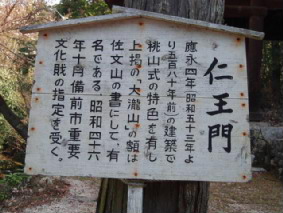 仁王門
應永四年（昭和五十三年よ
り五百八十年前）の建築で
桃山式の特色を有し
上掲の「大瀧山」の額は
佐文山の書にして、有
名である。昭和四十六
年十月備前市重要
文化財の指定を受く。